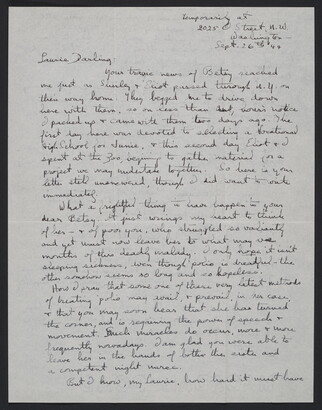 Temporarily at
2025 O Street, N.W.
Washington
Sept. 26th '44
Laurie Darling:
Your tragic news of Betsy reached
me just as Emily & Eliot passed through N.Y. on
their way home. They begged me to drive down
here with them, so on less than an hour's notice
I packed up & came with them two days ago. The
first day here was devoted to selecting a vocational
High School for Junie, & this second day Eliot & I
spent at the Zoo, beginning to gather material for a
project we may undertake together. So here is your
letter still unanswered, though I did want to write
immediately.
What a frightful thing to have happen to your
dear Betsy. It just wrings my heart to think
of her — & of poor you, who struggled so valiantly
and yet must now leave her to what may be
months of this deadly malady. I only hope it isn't
sleeping sickness, even though polio is dreadful — the
other somehow seems so long and so hopeless.
How I pray that some of these very latest methods
of treating polio may avail, & prevail, in her case,
& that you may soon hear that she has turned
the corner, and is regaining the power of speech &
movement. Such miracles do occur, more & more
frequently nowadays. I am glad you were able to
leave her in the hands of both the sister and
a competent night nurse.
But I know, my Laurie, how hard it must have